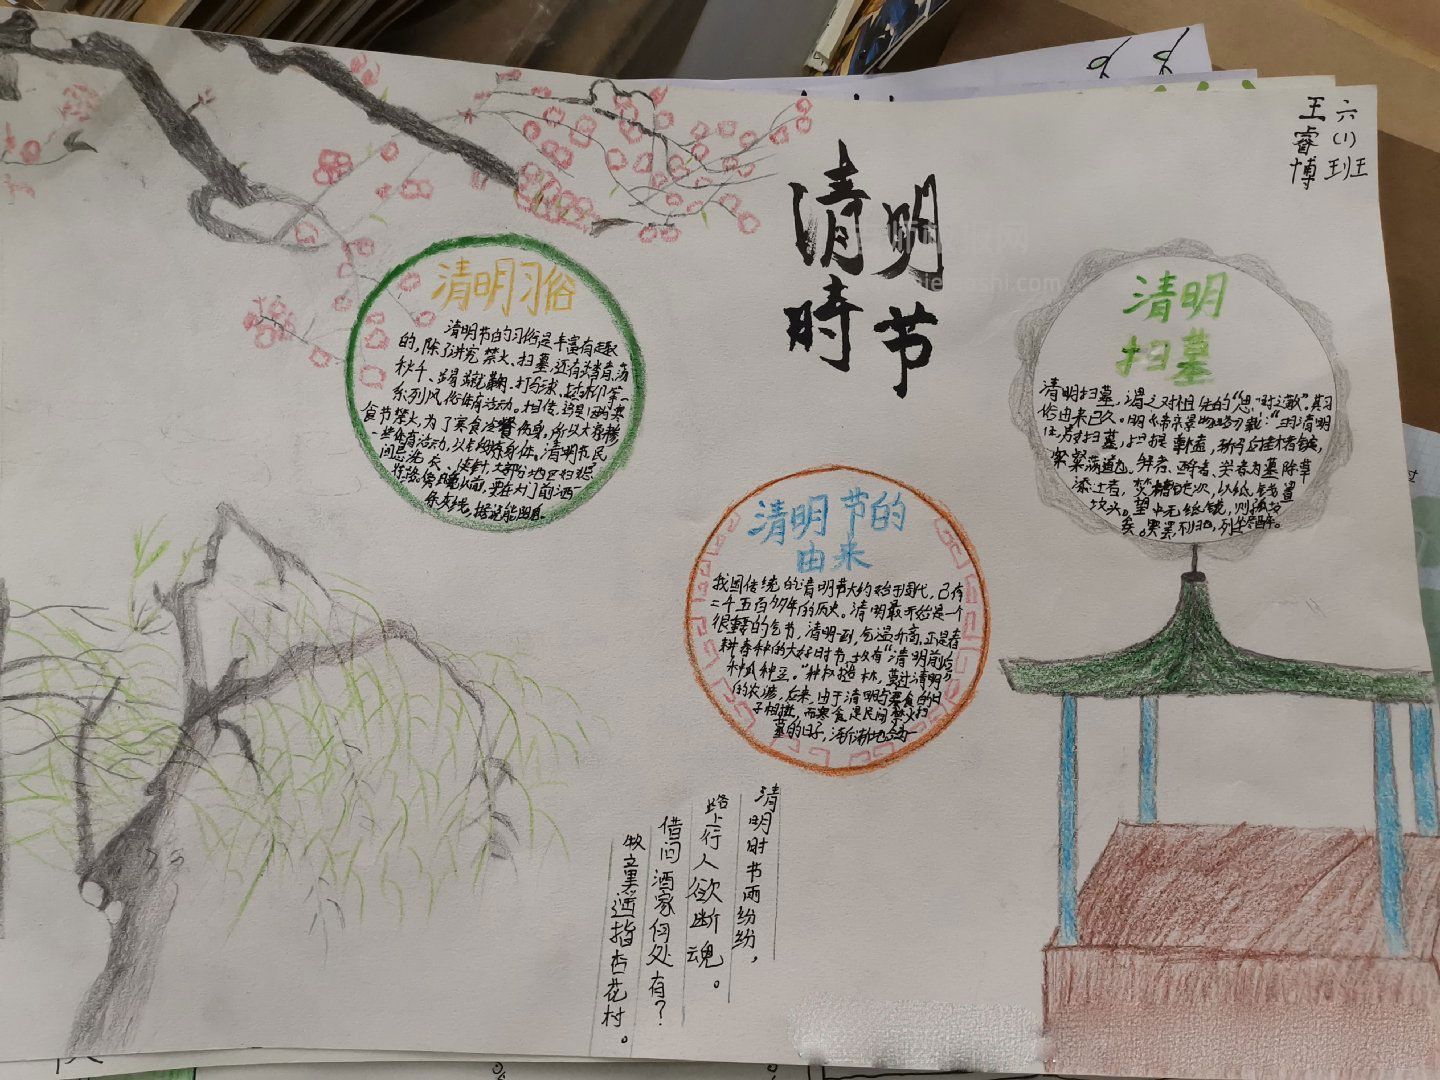 六(1)班
王睿博
清明
时节
清明习俗
清明节的习俗是丰富有趣
的,除了讲究禁火、扫墓,还有踏青、荡
秋千、蹴鞠、打马球、插柳等一
系列风俗体育活动。相传,这是因为寒
食节禁火,为了寒食冷餐伤身,所以大家参
一些体育活动,以锻炼身体。清明节,民
间忌
条灰线,据说能
清明
扫墓
清明扫墓,谓之对祖先的“思时之敬”。其习
俗由来已久。明《帝京景物略》载:“三月清明
日,男女扫墓,担提尊榼,轿马后挂楮锭,
粲粲然满道也。拜者、酹者、哭者、为墓除草
添土者,焚楮锭次,以纸钱置
坟头。望中无纸钱,则孤坟
矣。哭罢,不归也,列坐尽醉。
清明节的
由来
我国传统的清明节大约始于周代,已有
二千五百多年的历史。清明最开始是一个
很重要的节气,清明一到,气温升高,正是春
耕春种的大好时节,故有“清明前后
种瓜种豆。”“种树造林,莫过清明”
的农谚。后来,由于清明与寒食的日
子相近,而寒食是民间禁火扫
墓的日子,渐渐地合为一
清明时节雨纷纷,
路上行人欲断魂。
借问酒家何处有?
遥指杏花村。